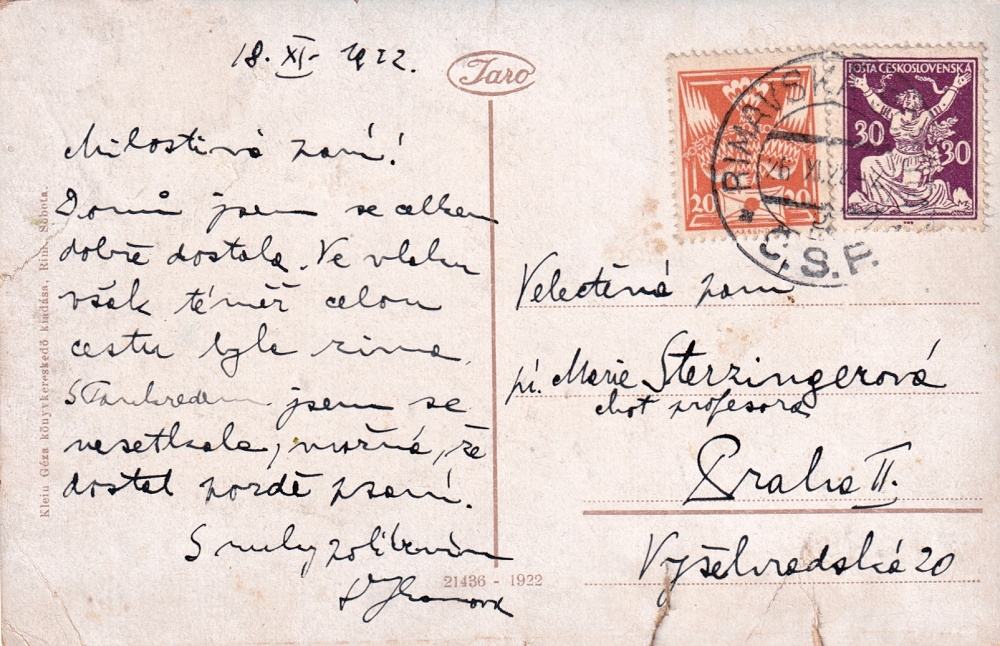 18. XI. 1922.
Taro
Milostivá paní!
Domů jsem se celkem
dobře dostala. Ve vlaku
však téměř celou
cestu byla zima.
S Tankredem jsem se
nesetkala, možná, že
dostal pozdě psaní.
S ruky políbením
Klein Géza könyvkereskedő kiadása, Rim. Sobota.
21436 - 1922
POŠTA ČESKOSLOVENSKÁ
20 20
30 30
RIMAVSKÁ
Č.S.P.
Velectěná paní
pí. Marie Sterzingerová
choť profesora
Praha II.
Vyšehradská 20